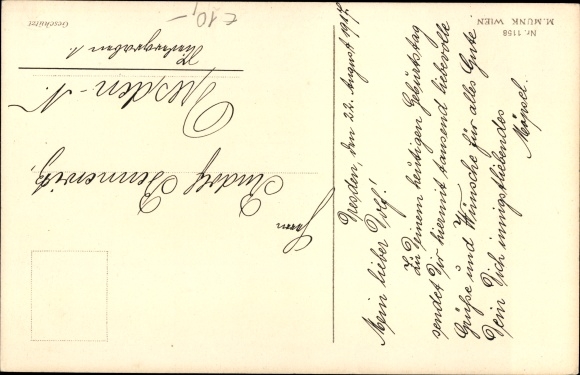 Nr. 1158
M. MUNK WIEN
Geschützt
€ 10,-
Dresden, den 22. August 1917.
Mein lieber Dolf!
Zu Deinem heutigen Geburtstag
sendet Dir hiermit tausend liebevolle
Grüße und Wünsche für alles Gute
Dein Dich innigstliebendes
Möpsel.
Herrn
Rudolf Bennewitz,
Dresden-N.